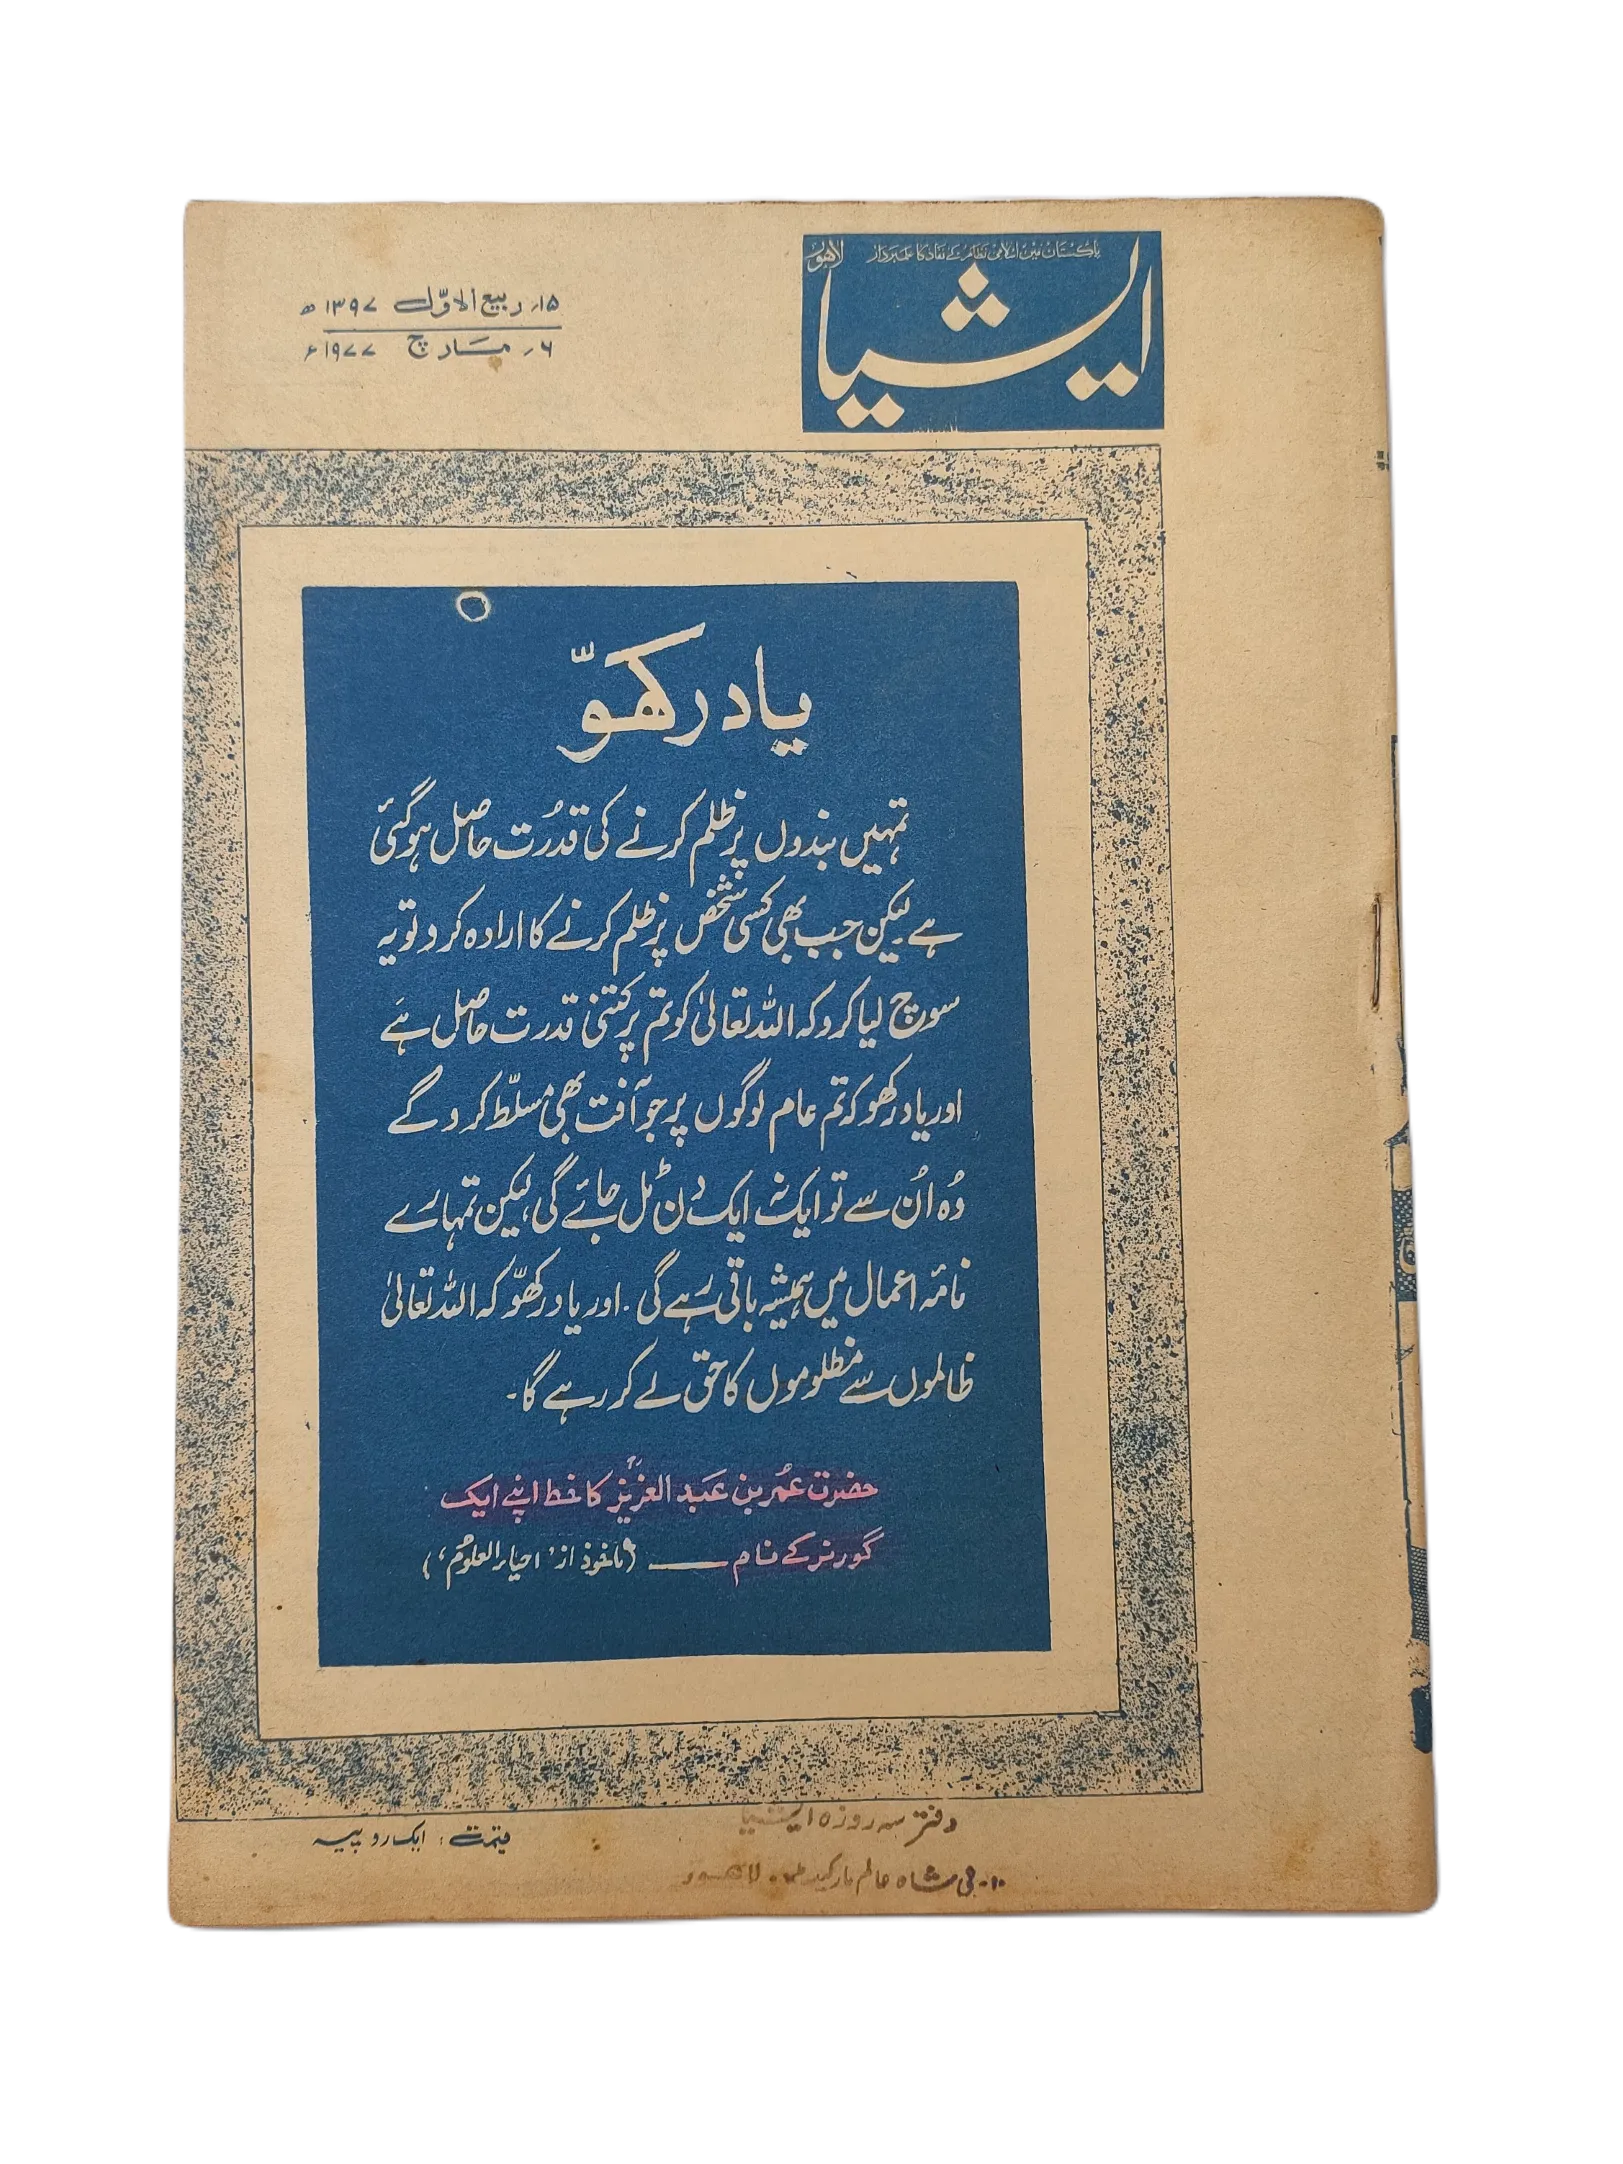 پاکستان میں اسلامی نظام کے نفاذ کا علمبردار
لاہور
ایشیا
۱۵؍ ربیع الاوّل ۱۳۹۷ھ
۶؍ مارچ ۱۹۷۷ء
یاد رکھوّ
تمہیں بندوں پر ظلم کرنے کی قدرت حاصل ہوگئی
ہے لیکن جب بھی کسی شخص پر ظلم کرنے کا ارادہ کرو تو یہ
سوچ لیا کرو کہ اللہ تعالیٰ کو تم پر کتنی قدرت حاصل ہے
اور یاد رکھو کہ تم عام لوگوں پر جو آفت بھی مسلّط کرو گے
وُہ اُن سے تو ایک نہ ایک دن ٹل جائے گی، لیکن تمہارے
نامۂ اعمال میں ہمیشہ باقی رہے گی۔ اور یاد رکھوّ کہ اللہ تعالیٰ
ظالموں سے مظلوموں کا حق لے کر رہے گا۔
حضرت عمُر بن عبد العزیزؒ کا خط اپنے ایک
گورنر کے نام ـــــ (ماخوذ از 'احیاء العلوم')
قیمت : ایک روپیہ
دفتر سہ روزہ ایشیا
۱۰۔ بی شاہ عالم مارکیٹ ۔ لاہور